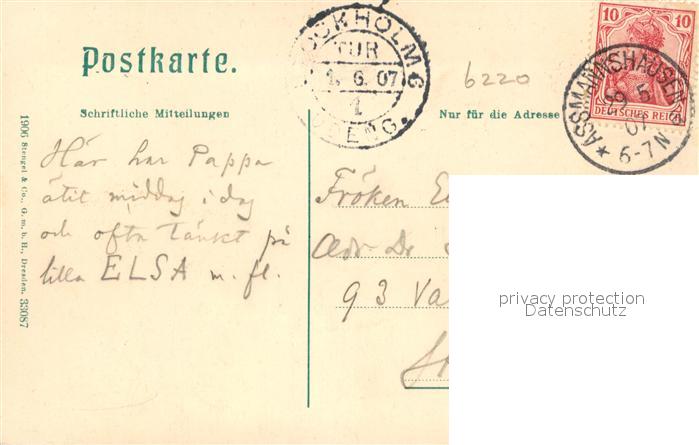 Postkarte.
Schriftliche Mitteilungen
Nur für die Adresse
1906 Stengel & Co., G. m. b. H., Dresden. 33087
STOCKHOLM 6
TUR
1. 6. 07
1
OMBÄRENG.
6220
10 10
DEUTSCHES REICH
ASSMANNSHAUSEN
29 5
07
6-7N
Här har Pappa
ätit middag i dag
och ofta tänkt på
lilla ELSA m. fl.
Fröken
Adr Dr
93 Va
privacy protection
Datenschutz